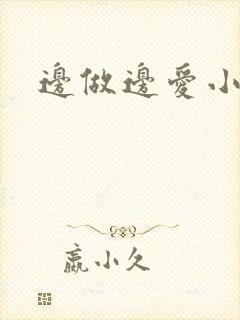 邊做邊愛小
嬴小久